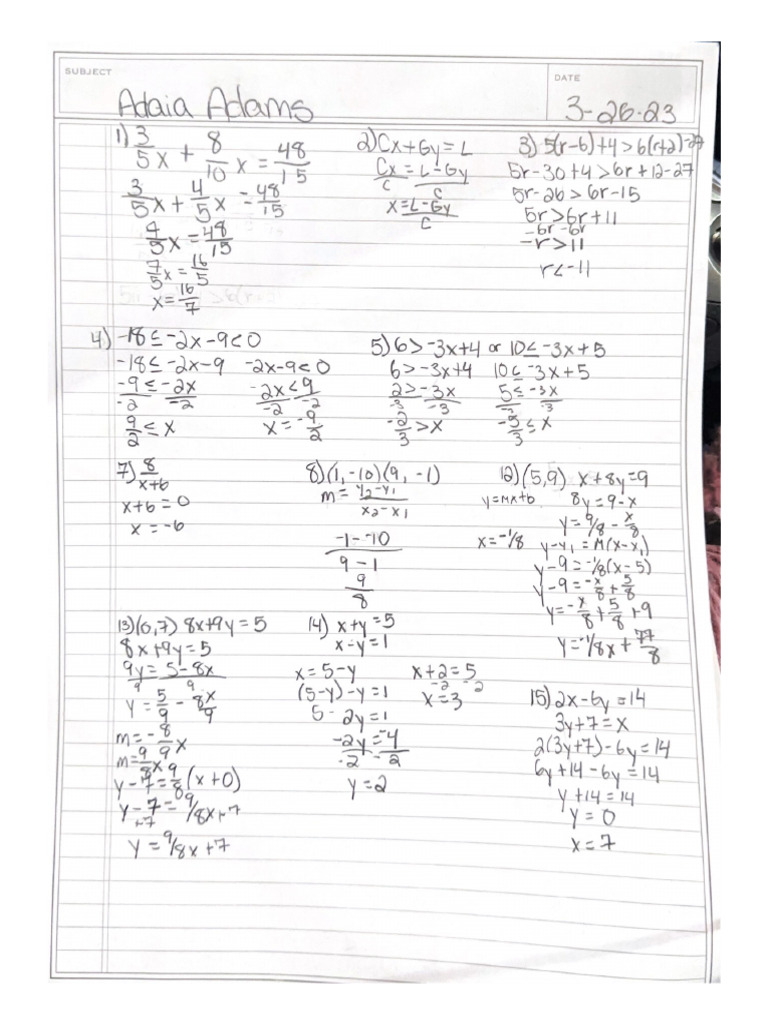 SUBJECT
DATE
Adaia Adams
3-26-23
1) 3/5x + 8/10 x = 48/15
3/5x + 4/5x = 48/15
4/5x = 48/15
7/5x = 16/5
x = 16/7
2) Cx + Gy = L
Cx/C = L-Gy/C
x = L-Gy/C
3) 5(r-6)+4>6(r+2)-27
5r-30+4>6r+12-27
5r-26>6r-15
5r>6r+11
-6r -6r
-r>11
r<-11
4) -18≤-2x-9<0
-18≤-2x-9 -2x-9<0
-9/-2 ≤ -2x/-2 -2x/-2 < 9/-2
9/2 ≤ x x = -9/2
5) 6>-3x+4 or 10≤-3x+5
6>-3x+4 10≤-3x+5
2/-3 > -3x/-3 5/-3 ≤ -3x/-3
-2/3 > x -5/3 ≤ x
7) 8/x+6
x+6=0
x=-6
8) (1,-10)(9,-1)
m = y2-y1/x2-x1
-1--10/9-1
9/8
12) (5,9) x+8y=9
y=mx+b 8y=9-x
y=9/8-x/8
x=-1/8 y-y1=M(x-x1)
y-9=-1/8(x-5)
y-9=-x/8+5/8
y=-x/8+5/8+9
y=-1/8x+77/8
13) (0,7) 8x+9y=5
8x+9y=5
9y/9 = 5-8x/9
y=5/9-8x/9
m=-8/9x
m=9/8x
y-7=9/8(x+0)
y-7=9/8x+7
+7
y=9/8x+7
14) x+y=5
x-y=1
x=5-y x+2=5
(5-y)-y=1 -2 -2
5-2y=1 x=3
-2y/-2 = -4/-2
y=2
15) 2x-6y=14
3y+7=x
2(3y+7)-6y=14
6y+14-6y=14
y+14=14
y=0
x=7